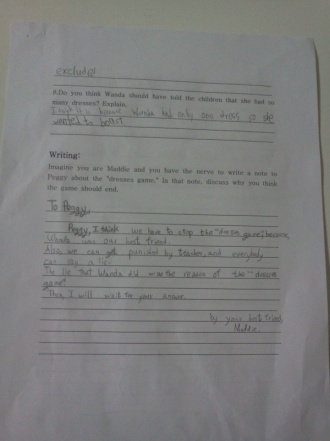 exclude!
8.Do you think Wanda should have told the children that she had so
many dresses? Explain.
I because Wanda had only one dress, so she
wanted to boast.
Writing:
Imagine you are Maddie and you have the nerve to write a note to
Peggy about the "dresses game." In that note, discuss why you think
the game should end.
To Peggy,
Peggy, I think we have to stop the "dresses game", because,
Wanda was our best friend.
Also, we can get punished by teacher, and everybody
can a lie.
The lie that Wanda did was the reason of the "dresses
game".
Then, I will wait for your answer.
by your best friend,
Maddie.